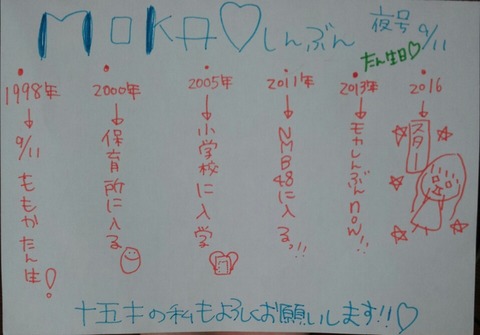 MOKA♡しんぶん 夜号 9/11
たん生日♡
1998年 2000年 2005年 2011年 2013年 2016
9/11 ももかたん生!
保育所に入る
小学校に入学
NMB48に入る!!
モカしんぶんnow!!
スター
十五才の私もよろしくお願いします!!♡